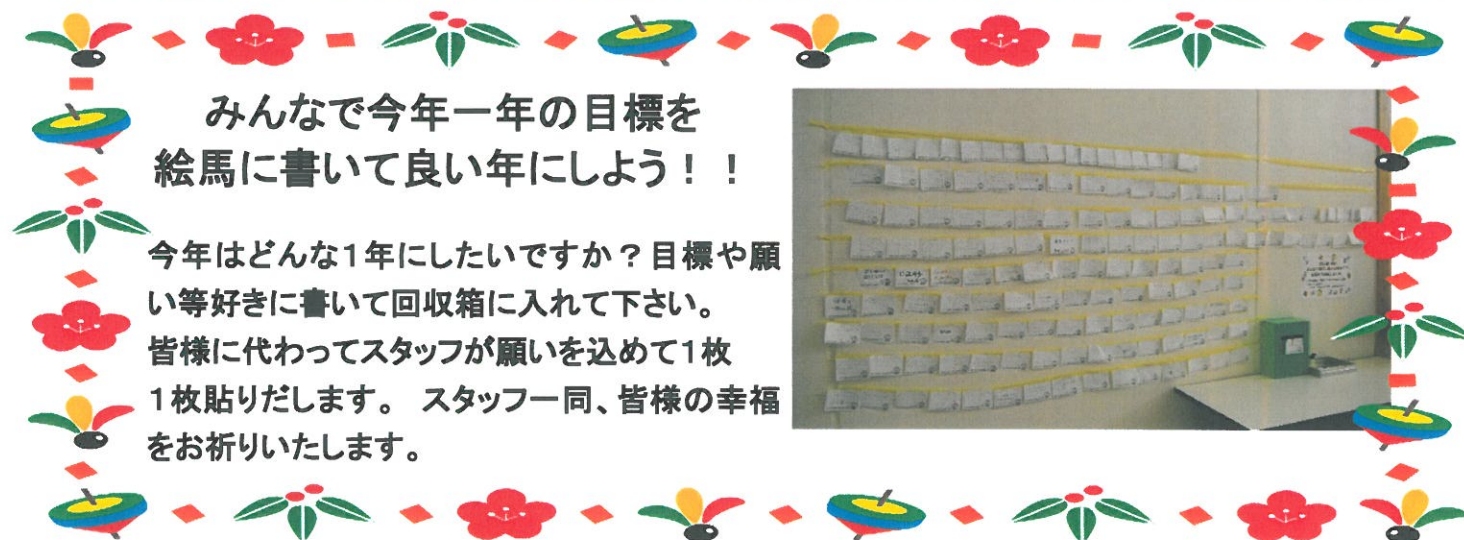 みんなで今年一年の目標を
絵馬に書いて良い年にしよう！！
今年はどんな1年にしたいですか？目標や願
い等好きに書いて回収箱に入れて下さい。
皆様に代わってスタッフが願いを込めて1枚
1枚貼りだします。 スタッフ一同、皆様の幸福
をお祈りいたします。